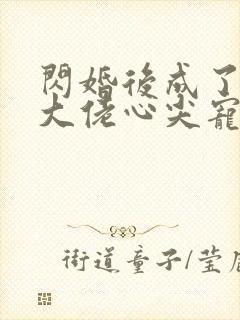 閃婚後成了
大佬心尖寵
街道童子/莹